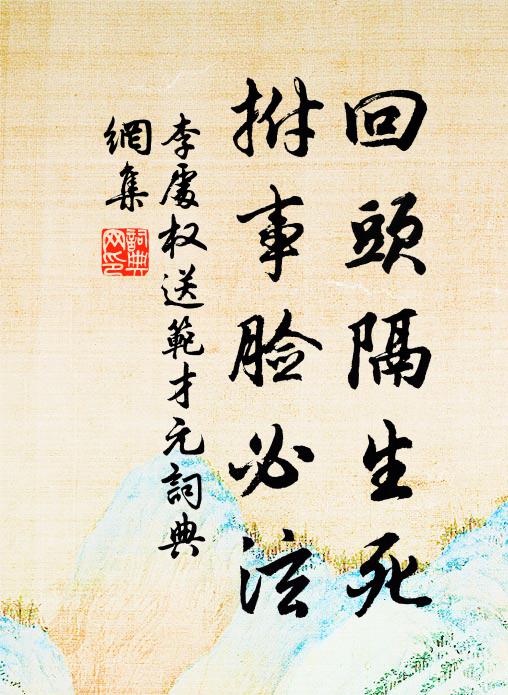 回頭隔生死
拊事脸必泫
李處权送範才元詞典
網集
詞典
網印